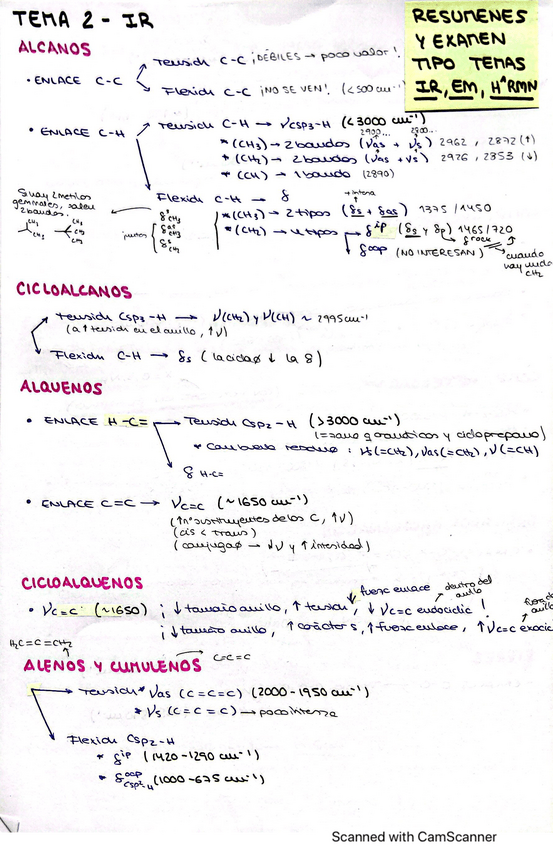 TEMA 2 - IR
RESUMENES
Y EXAMEN
TIPO TEMAS
IR, EM, H¹RMN
ALCANOS
• ENLACE C-C
Tensión C-C ¡DÉBILES → poco valor!
Flexión C-C ¡NO SE VEN! (<500 cm⁻¹)
• ENLACE C-H
Tensión C-H → νCsp3-H (<3000 cm⁻¹)
* (CH3) → 2 bandas (νas + νs) 2962, 2872 (↑)
* (CH2) → 2 bandas (νas + νs) 2926, 2853 (↓)
* (CH) → 1 banda (2890)
Flexión C-H → δ
+ intensa
* (CH3) → 2 tipos (δs + δas) 1375 / 1450
* (CH2) → 4 tipos δip (δs y δρ) 1465/720
δoop (NO INTERESAN)
δrock
cuando hay mucho CH2
Si hay 2 metilos
geminales, salen
2 bandas.
juntos
CICLOALCANOS
Tensión Csp3-H → ν(CH2) y ν(CH) ~ 2995 cm⁻¹
(a ↑ tensión en el anillo, ↑ν)
Flexión C-H → δs (la ciclaø ↓ la δ)
ALQUENOS
• ENLACE H-C= Tensión Csp2-H (>3000 cm⁻¹)
(= zona q aromáticos y ciclopropano)
δ H-C=
• ENLACE C=C → νC=C (~1650 cm⁻¹)
(↑nº sustituyentes de los C, ↑ν)
(cis < trans)
(conjugaø → ↓ν y ↑ intensidad)
CICLOALQUENOS
fuerz enlace
dentro del anillo
• νC=C (~1650) ¡ ↓ tamaño anillo, ↑ tensión, ↓ νC=C endocíclic !
fuera de anillo
¡ ↓ tamaño anillo, ↑ carácter s, ↑ fuerz enlace, ↑ νC=C exocíc
H2C=C=CH2
C=C=C
ALENOS Y CUMULENOS
Tensión * νas (C=C=C) (2000-1950 cm⁻¹)
* νs (C=C=C) → poco intensa
Flexión Csp2-H
* δip (1420-1290 cm⁻¹)
* δoop Csp2-H (1000-675 cm⁻¹)
Scanned with CamScanner